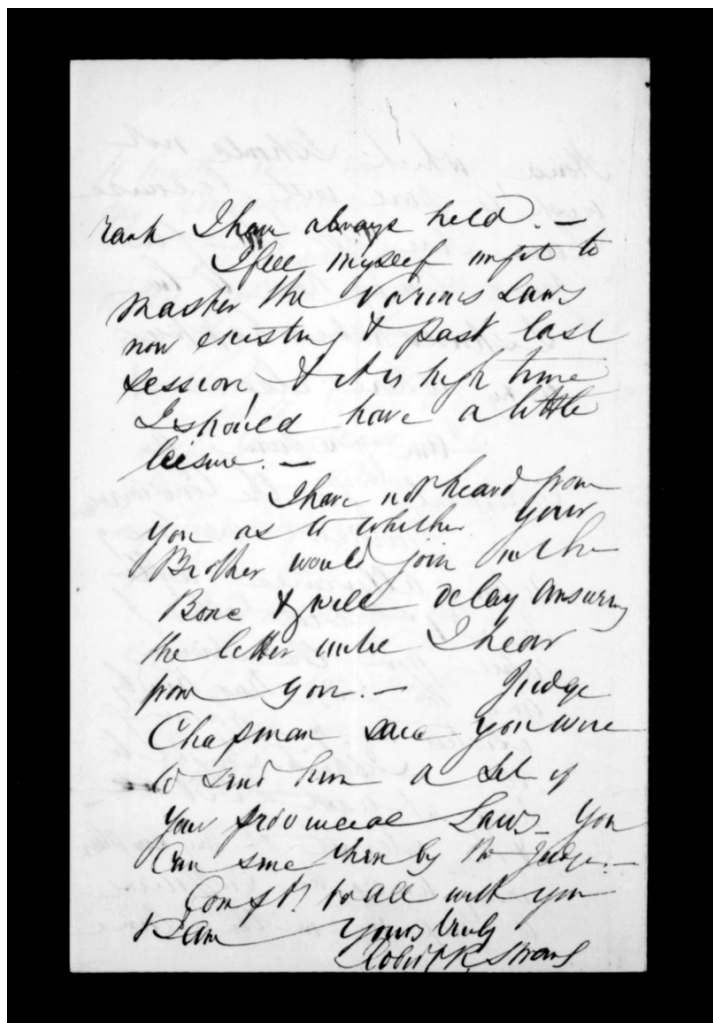 rank I have always held. —
I feel myself unfit to
master the various Laws
now existing & past last
session, & it is high time
I should have a little
leisure. —
I have not heard from
you as to whether your
Brother would join in the
Bone & will delay answering
the letter until I hear
from you. — Judge
Chapman said you were
to send him a set of
your provincial Laws – You
Can send them by the Judge. —
Comp.ts to all with you
I am Yours truly
Robert R. Strang